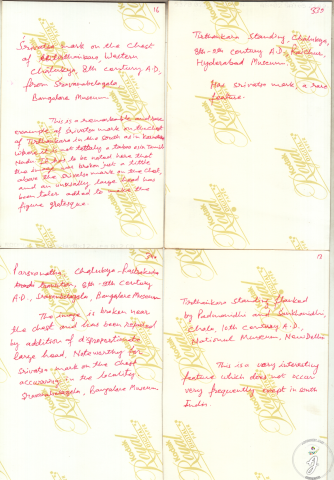 16
Srivatsa mark on the chest
of Tirthankara, Western
Chalukya, 8th century A.D.,
from Sravanabelagola,
Bangalore Museum
This is a remarkable and rare
example of srivatsa mark on the chest
of Tirthankara in the south as in Karnataka
where it is not totally a taboo as in Tamil
Nadu. It has to be noted here that
the image was broken just a little
above the srivatsa mark on the chest,
and an unusually large head has
been later added to make the
figure grotesque.
33
Tirthankara standing, Chalukya,
8th-9th century A.D., Raichur,
Hyderabad Museum.
Has srivatsa mark, a rare
feature.
Parsvanatha, Chalukya-Rashtrakuta
transition, 8th-9th century
A.D., Sravanabelagola, Bangalore Museum
The image is broken near
the chest and has been repaired
by addition of disproportionate
large head. Noteworthy for
srivatsa mark on the chest
occurring in the locality.
Sravanabelagola, Bangalore Museum
Tirthankara standing flanked
by Padmanidhi and Sankhanidhi,
Chola, 10th century A.D.,
National Museum, New Delhi
This is a very interesting
feature which does not occur
very frequently except in south
India